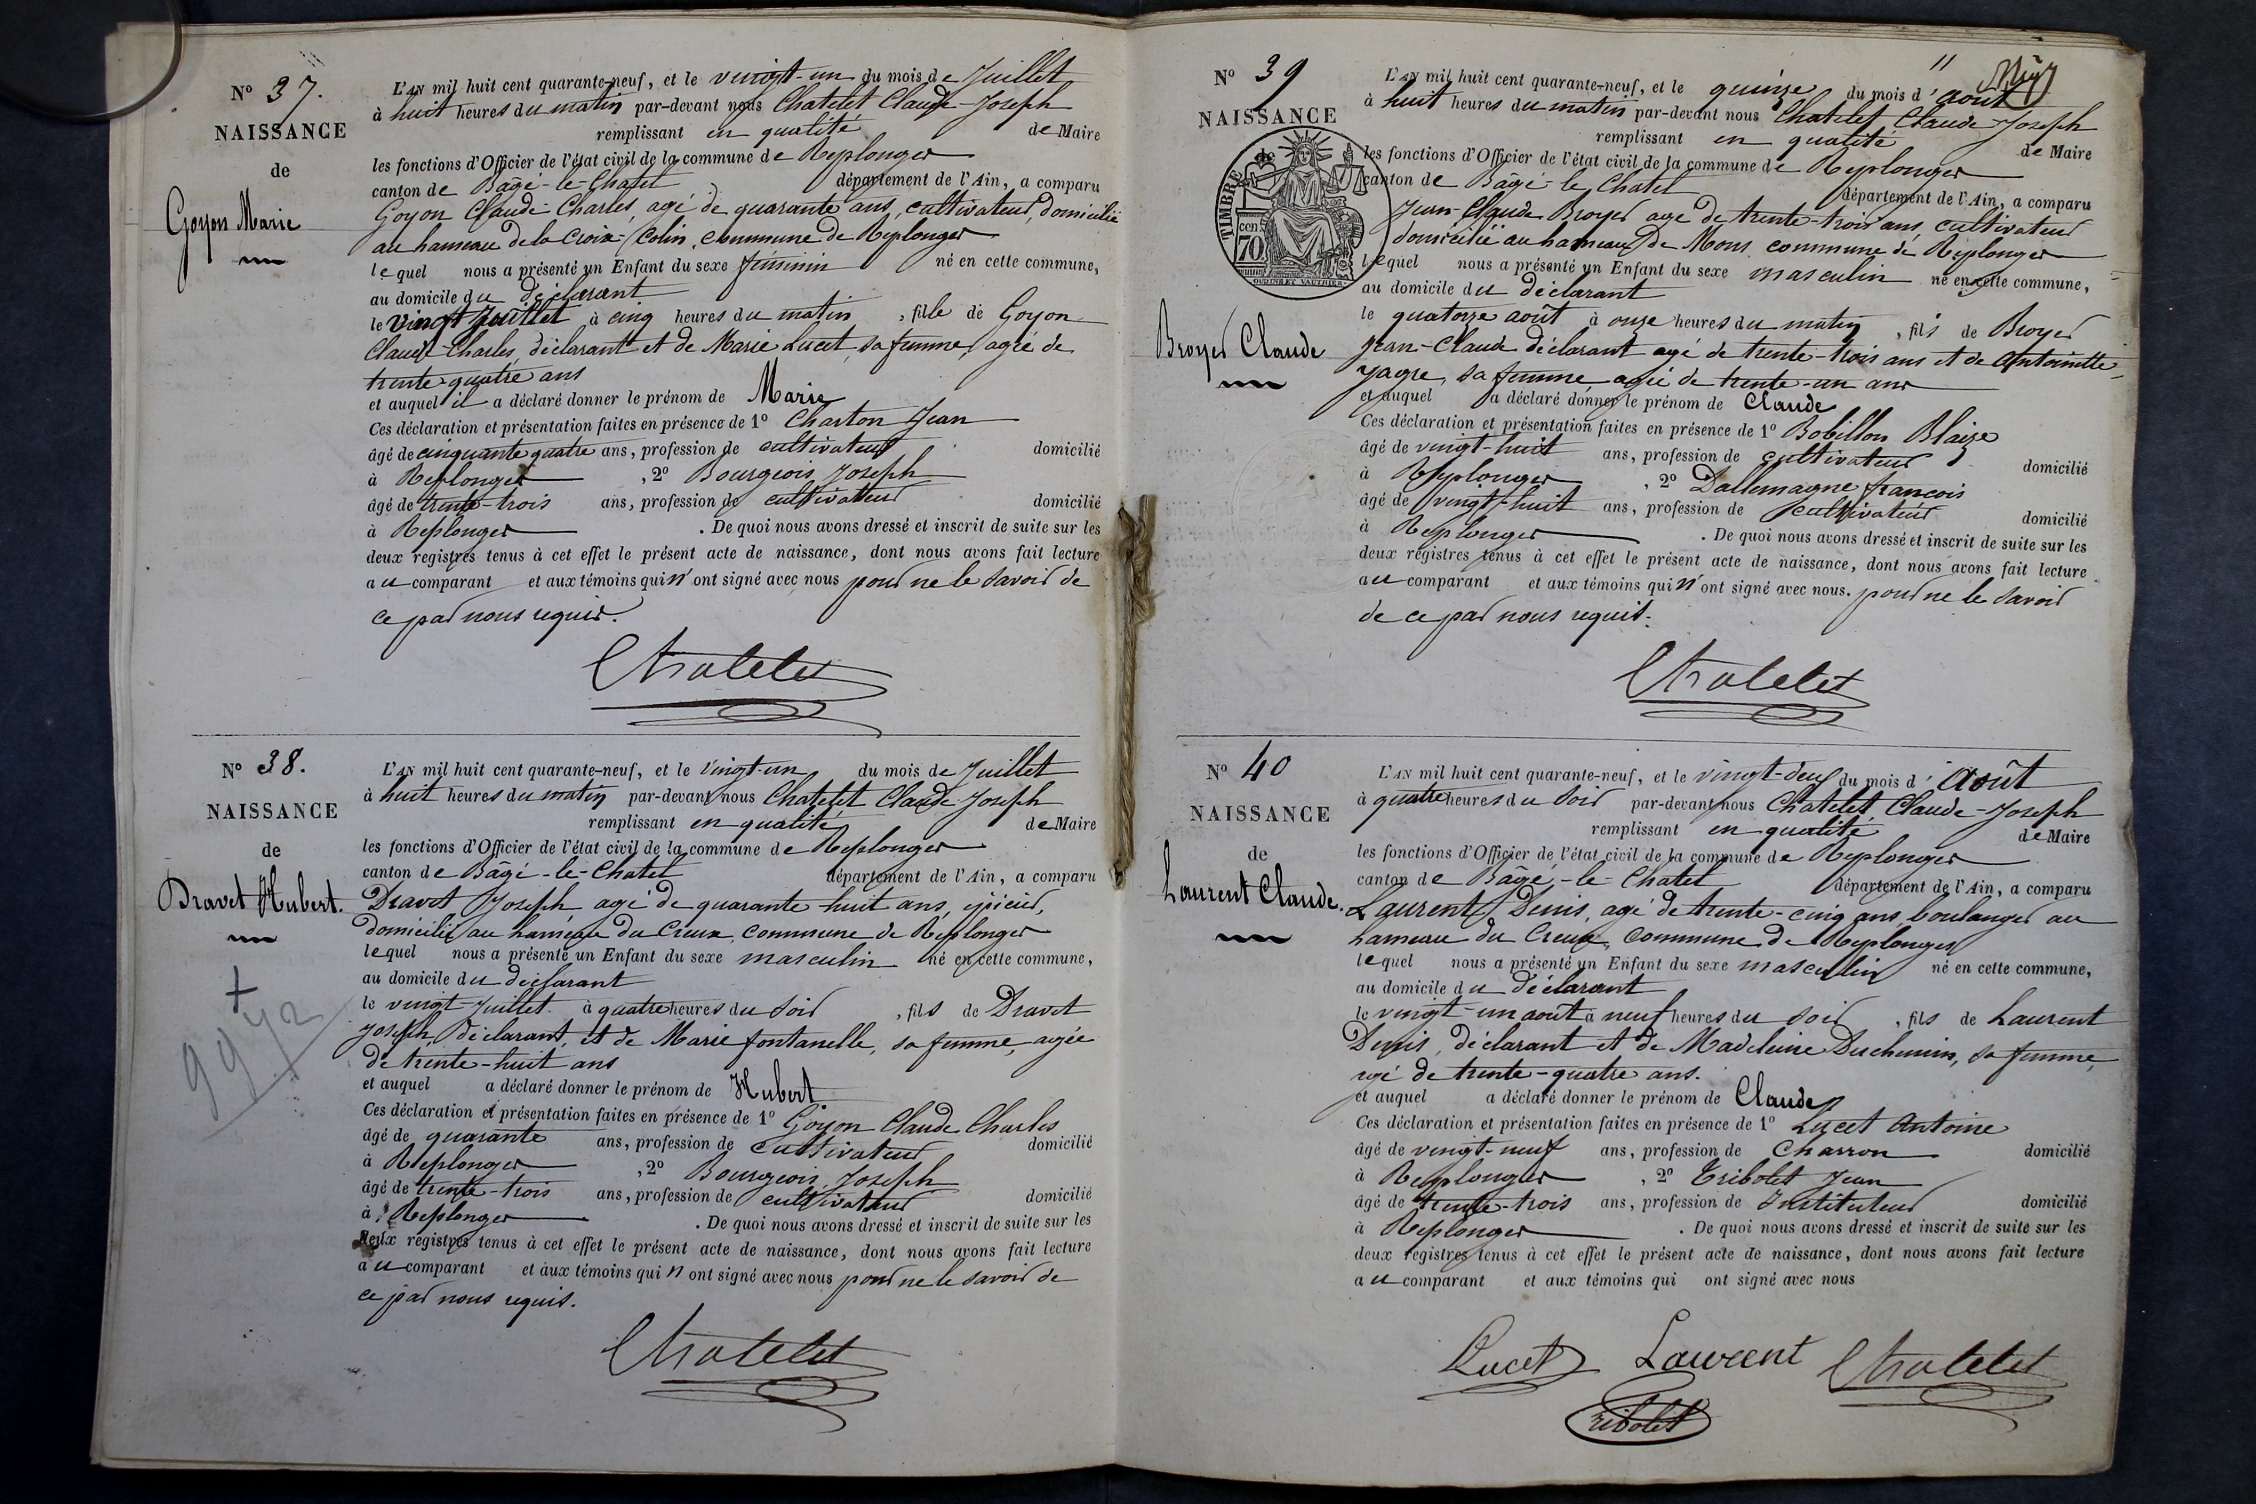 N° 37.
NAISSANCE
de
Goyon Marie
L'AN mil huit cent quarante-neuf, et le vingt-un du mois de Juillet
à huit heures du matin par-devant nous Chatelet Claude-Joseph
remplissant en qualité de Maire
les fonctions d'Officier de l'état civil de la commune de Replonger
canton de Bâgé-le-Chatel département de l'Ain, a comparu
Goyon Claude-Charles, agé de quarante ans, cultivateur, domicilié
au hameau de la Croix-Colin, commune de Replonger
lequel nous a présenté un Enfant du sexe féminin né en cette commune,
au domicile du déclarant
le vingt Juillet à cinq heures du matin, fille de Goyon
Claude-Charles, déclarant et de Marie Lucet, sa femme, agée de
trente-quatre ans
et auquel il a déclaré donner le prénom de Marie
Ces déclaration et présentation faites en présence de 1° Charton Jean
âgé de cinquante quatre ans, profession de cultivateur domicilié
à Replonger, 2° Bourgeois Joseph
âgé de trente-trois ans, profession de cultivateur domicilié
à Replonger. De quoi nous avons dressé et inscrit de suite sur les
deux registres tenus à cet effet le présent acte de naissance, dont nous avons fait lecture
au comparant et aux témoins qui n'ont signé avec nous pour ne le savoir de
ce par nous requis.
Chatelet
N° 38.
NAISSANCE
de
Dravet Hubert.
99 72
L'AN mil huit cent quarante-neuf, et le vingt-un du mois de Juillet
à huit heures du matin par-devant nous Chatelet Claude-Joseph
remplissant en qualité de Maire
les fonctions d'Officier de l'état civil de la commune de Replonger
canton de Bâgé-le-Chatel département de l'Ain, a comparu
Dravet Joseph agé de quarante huit ans, épicier,
domicilié au hameau du Creux, commune de Replonger
lequel nous a présenté un Enfant du sexe masculin né en cette commune,
au domicile du déclarant
le vingt-Juillet à quatre heures du soir, fils de Dravet
Joseph, déclarant, et de Marie fontanelle, sa femme, agée
de trente-huit ans
et auquel a déclaré donner le prénom de Hubert
Ces déclaration et présentation faites en présence de 1° Goyon Claude Charles
âgé de quarante ans, profession de cultivateur domicilié
à Replonger, 2° Bourgeois, Joseph
âgé de trente-trois ans, profession de cultivateur domicilié
à Replonger. De quoi nous avons dressé et inscrit de suite sur les
deux registres tenus à cet effet le présent acte de naissance, dont nous avons fait lecture
au comparant et aux témoins qui n'ont signé avec nous pour ne le savoir de
ce par nous requis.
Chatelet
11
N° 39
NAISSANCE
de
TIMBRE
70 cen
OUDINE ET VAUTHIER
Broyer Claude
L'AN mil huit cent quarante-neuf, et le quinze du mois d'août
à huit heures du matin par-devant nous Chatelet Claude-Joseph
remplissant en qualité de Maire
les fonctions d'Officier de l'état civil de la commune de Replonger
canton de Bâgé-le-Chatel département de l'Ain, a comparu
Jean-Claude Broyer age de trente-trois ans, cultivateur
domicilié au hameau de Mons commune de Replonger
lequel nous a présenté un Enfant du sexe masculin né en cette commune,
au domicile du déclarant
le quatorze août à onze heures du matin, fils de Broyer
Jean-Claude déclarant agé de trente-trois ans et de Antoinette
Jagre, sa femme agée de trente-un ans
et auquel a déclaré donner le prénom de Claude
Ces déclaration et présentation faites en présence de 1° Bobillon Blaize
âgé de vingt-huit ans, profession de cultivateur domicilié
à Replonger, 2° Dallemagne françois
âgé de vingt-huit ans, profession de cultivateur domicilié
à Replonger. De quoi nous avons dressé et inscrit de suite sur les
deux registres tenus à cet effet le présent acte de naissance, dont nous avons fait lecture
au comparant et aux témoins qui n'ont signé avec nous. pour ne le savoir
de ce par nous requis.
Chatelet
N° 40
NAISSANCE
de
Laurent Claude.
L'AN mil huit cent quarante-neuf, et le vingt-deux du mois d'août
à quatre heures du soir par-devant nous Chatelet, Claude-Joseph
remplissant en qualité de Maire
les fonctions d'Officier de l'état civil de la commune de Replonger
canton de Bâgé-le-Chatel département de l'Ain, a comparu
Laurent, Denis, agé de trente-cinq ans, boulanger au
hameau du Creux, commune de Replonger
lequel nous a présenté un Enfant du sexe masculin né en cette commune,
au domicile du déclarant
le vingt-un août à neuf heures du soir, fils de Laurent
Denis, déclarant et de Madeleine Duchemin, sa femme,
agé de trente-quatre ans.
et auquel a déclaré donner le prénom de Claude
Ces déclaration et présentation faites en présence de 1° Lucet Antoine
âgé de vingt-neuf ans, profession de Charron domicilié
à Replonger, 2° Tribolet Jean
âgé de trente-trois ans, profession de Instituteur domicilié
à Replonger. De quoi nous avons dressé et inscrit de suite sur les
deux registres tenus à cet effet le présent acte de naissance, dont nous avons fait lecture
au comparant et aux témoins qui ont signé avec nous
Lucet Laurent Chatelet
Tribolet